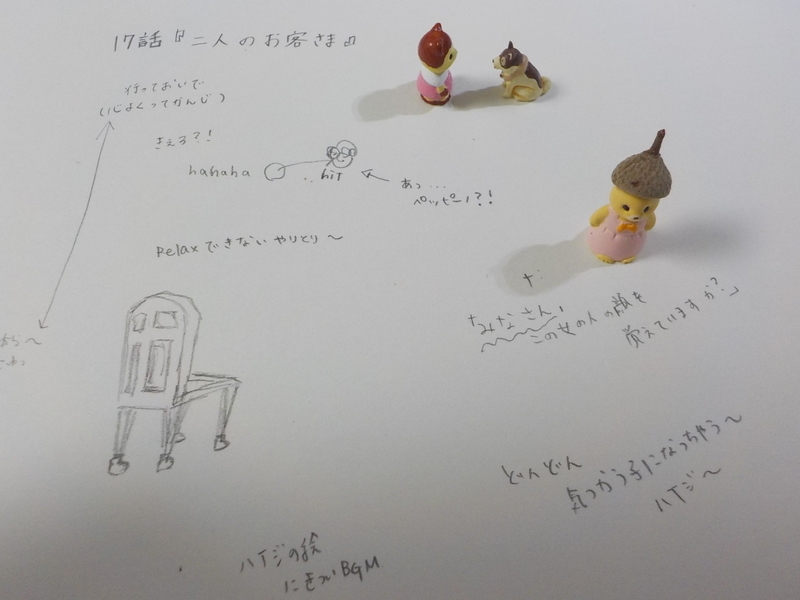 17話『二人のお客さま』
行っておいで
(いじよくってかんじ)
さぇろ?!
hahaha
..hit
あっ...
ペッピーノ?!
Relaxできないやりとり〜
「みなさん、
この女の人の顔を
覚えていますか?」
どんどん
気つかう子になっちゃう〜
ハイジ〜
ハイジの絵
BGM